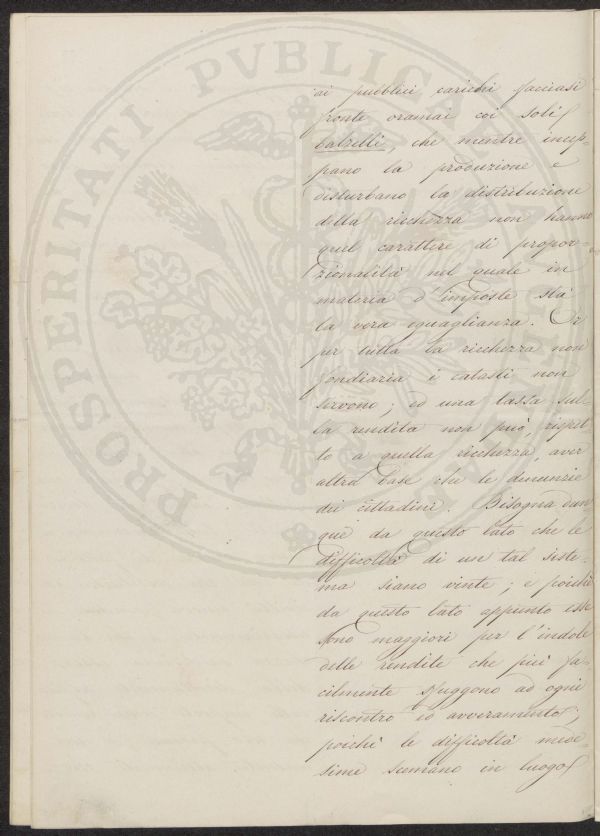 PROSPERITATI PVBLICAE
ai pubblici carichi facciasi
fronte oramai coi soli
balzelli, che mentre incep-
pano la produzione e
disturbano la distribuzione
della ricchezza non hanno
quel carattere di propor-
zionalità nel quale in
materia d'imposte sta
la vera eguaglianza. Or
per tutta la ricchezza non
fondiaria i catasti non
servono; ed una tassa sul-
la rendita non può, rispet
to a quella ricchezza, aver
altra base che le denunzie
dei cittadini. Bisogna dun
que da questo lato che le
difficoltà di un tal siste-
ma siano vinte; e poichè
da questo lato appunto esse
sono maggiori per l'indole
delle rendite che più fa-
cilmente sfuggono ad ogni
riscontro ed avveramento;
poichè le difficoltà mede-
sime scemano in luogo